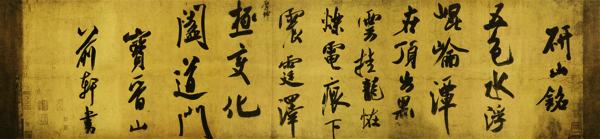 研山銘
五色水浮
崐崘潭
在頂出黑
雲挂龍怪
爍電痕下
震霆澤
厚坤
極變化
闔道門
寶晉山
前軒書